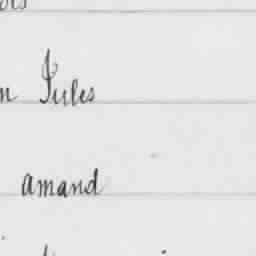 n Jules
amand